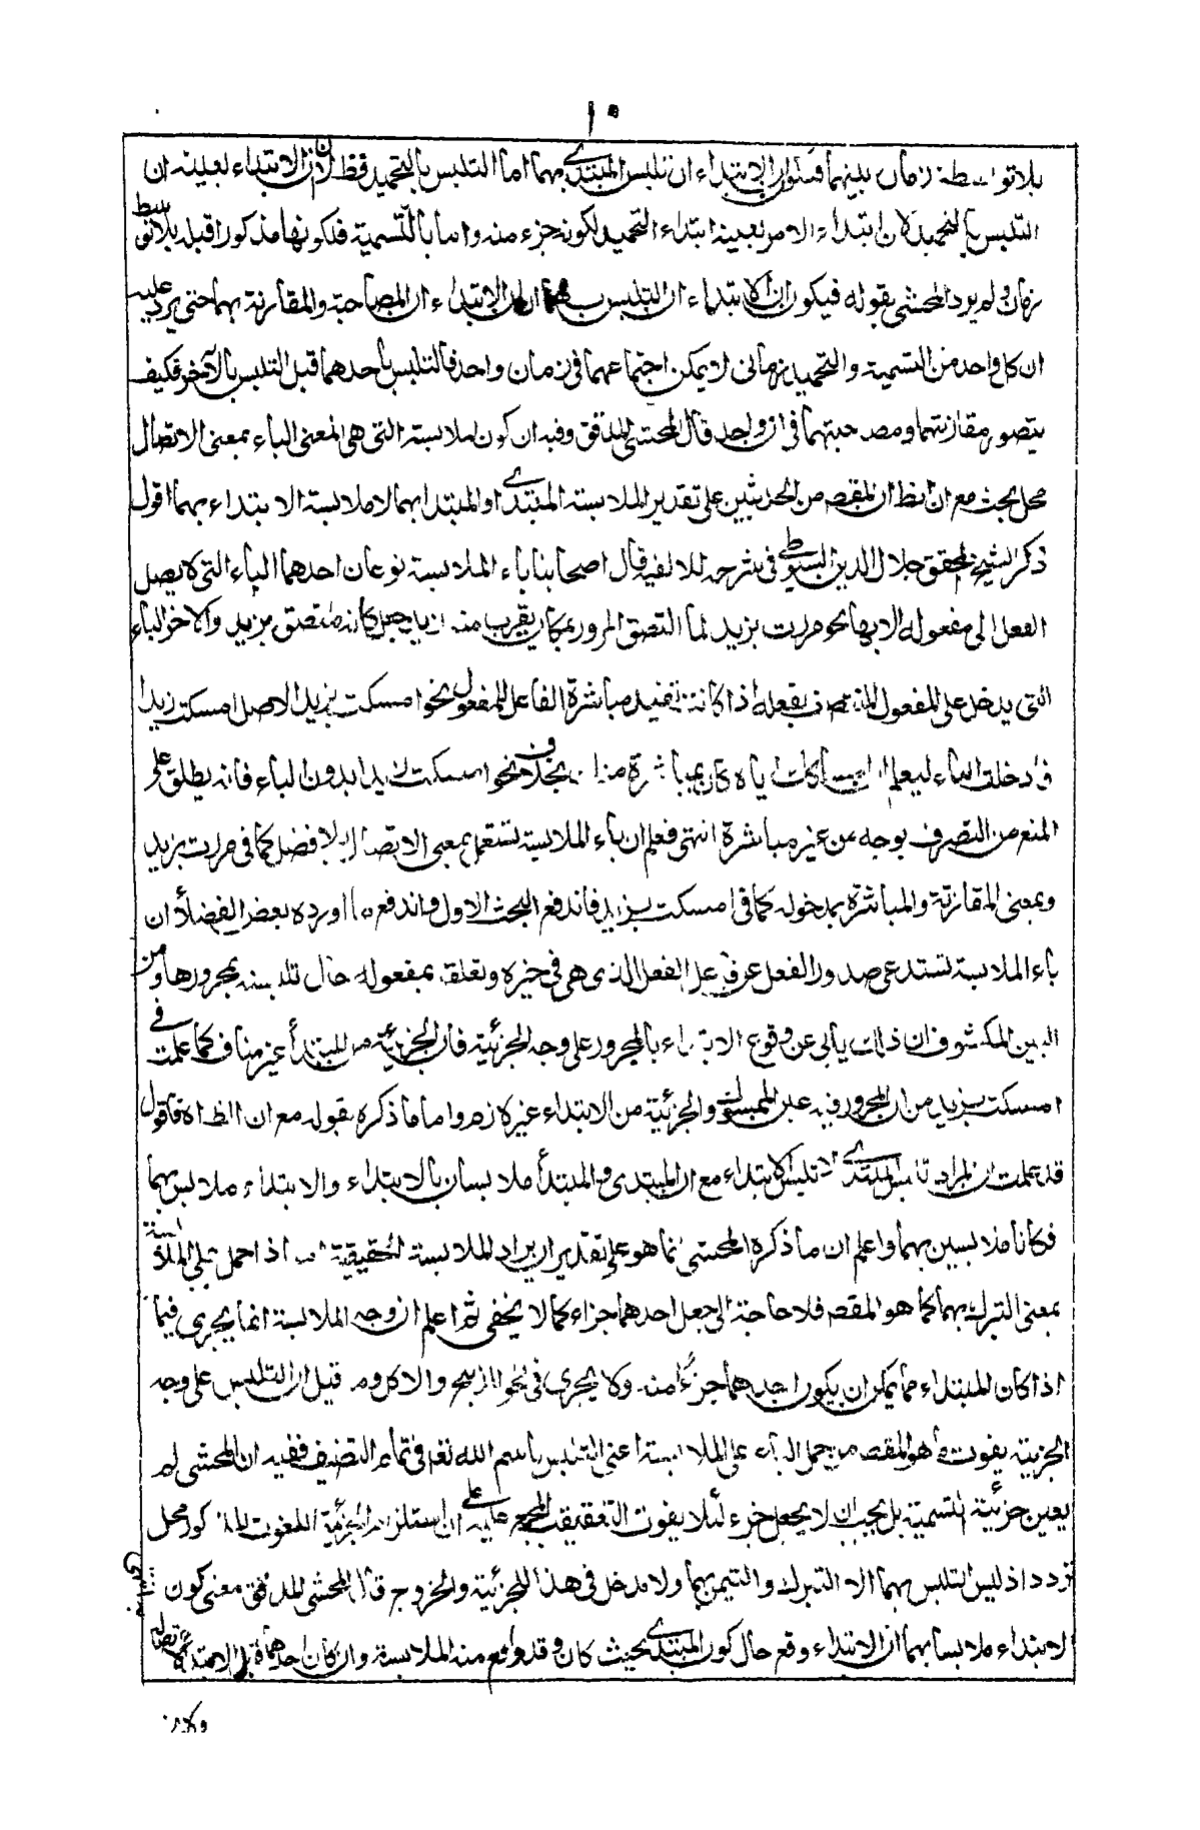 ١٠
بلا توسطة زمان بينهما فيكون ان الابتداء ان تلبس المبتدى بهما اما التلبس بالتحميد فظ لان ان الابتداء بعينه ان
التلبس بالتحميد لان ابتداء الامر بعينه ابتداء التحميد لكونه جزء منه واما بالتسمية فلكونها مذكورا قبله بلا توسط
زمان ولم يرد المحشى بقوله فيكون ان الابتداء ان التلبس بهما ان الابتداء ان المصاحبة والمقارنة بهما حتى يرد عليه
ان كل واحد من التسمية والتحميد زمانى لا يمكن اجتماعهما فى زمان واحد فالتلبس باحدهما قبل التلبس بالآخر فكيف
يتصور مقارنتهما ومصاحبتهما فى ان واحد قال المحشى المدقق وفيه ان كون الملابسة التى هى المعنى الباء بمعنى الاتصال
محل بحث مع ان الظ ان المقصد من الحديثين على تقدير الملابسة المبتدى او المبتدا بهما لا ملابسة الابتداء بهما اقول
ذكر الشيخ المحقق جلال الدين السيوطى فى شرحه للالفية قال اصحابنا باء الملابسة نوعان احدهما الباء التى لا يصل
الفعل الى مفعوله الا بها نحو مررت بزيد لما التصق المرور بمكان يقرب منه زيد جعل كانه ملتصق بزيد والاخر الباء
التى يدخل على المفعول المنتصف بفعله اذا كانت تفيد مباشرة الفاعل للمفعول نحو امسكت بزيد الاصل امسكت زيدا
فادخلت الباء ليعلم ان امساكك اياه كان بمباشرة منك بخلاف نحو امسكت زيدا بدون الباء فانه يطلق على
المنع من التصرف بوجه من غير مباشرة انتهى فعلم ان باء الملابسة تستعمل بمعنى الاتصال بلا فصل كما فى مررت بزيد
وبمعنى المقارنة والمباشرة بمدخوله كما فى امسكت بزيد فاندفع البحث الاول واندفع ما اورده بعض الفضلأ ان
باء الملابسة تستدعى صدور الفعل عرفا عن الفعل الذى هى فى حيزه وتعلقه بمفعوله حال تلبسه بمجرورها ومن
البين المكشوف ان ذلك يأبى عن وقوع الابتداء بالمجرور على وجه الجزئية فان الجزئية من المبتدأ غير مناف كما علمت فى
امسكت بزيد من ان المجرور فيه عين الممسوك والجزئية من الابتداء غير لازم واما ما ذكره بقوله مع ان الظاه فاقول
قد علمت ان المراد تلبس المبتدى لا تلبس الابتداء مع ان المبتدى والمبتدأ ملابسان بالابتداء والابتداء ملابس بهما
فكانا ملابسين بهما واعلم ان ما ذكره المحشى انما هو على تقدير ان يراد الملابسة الحقيقية اما اذا حمل على الملابسة
بمعنى التبرك بهما كما هو المقصد فلا حاجة الى جعل احدهما جزاء كما لا يخفى ثم اعلم ان وجه الملابسة انما يجرى فيما
اذا كان المبتداء مما يمكن ان يكون احدهما جزءً منه ولا يجرى فى نحو الذبح والاكل وما قيل ان التلبس على وجه
الجزئية يفوت ما هو المقصد من حمل الباء على الملابسة اعنى التلبس باسم الله تعا فى تمام التصنيف ففيه ان المحشى لم
يعين جزئية التسمية بل يجب ان لا يجعل جزء لئلا يفوت التعقيب المجمع عليه على ان استلزام الجزئية المفوت للمذكور محل
تردد اذ ليس التلبس بهما الا التبرك والتيمن بهما ولا مدخل فى هذا للجزئية والخروج قال المحشى المدقق معنى كون
الابتداء ملابسا بهما ان الابتداء وقع حال كون المبتدى بحيث كان وقد وقع منه الملابسة وان كان احدهما قبل الابتداء متصلا
ولا من